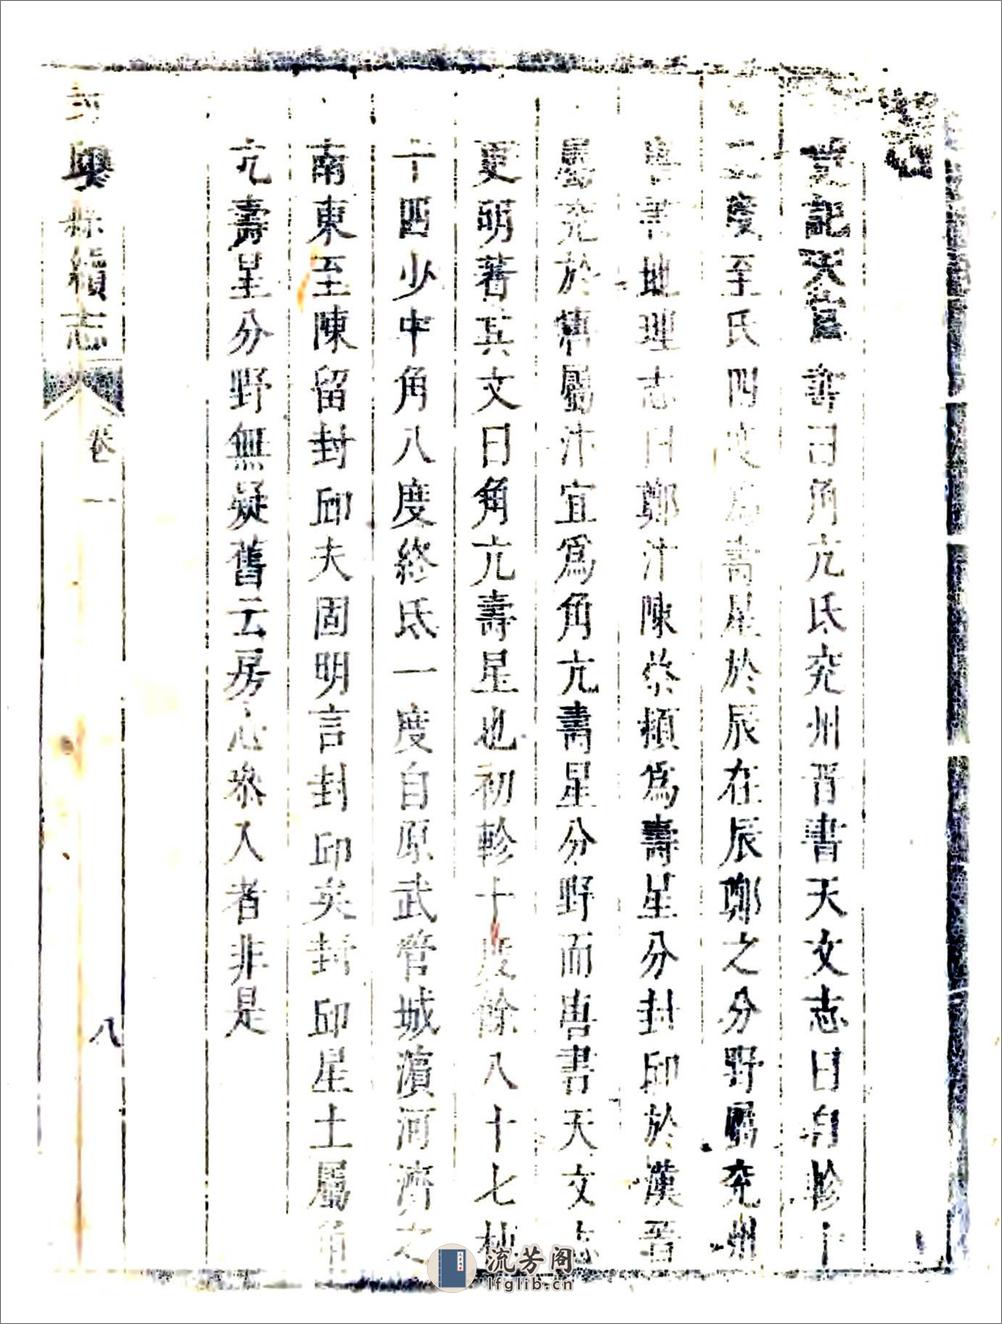 史記天官書曰角亢氐兖州晋書天文志曰自軫十
二度至氐四度爲壽星於辰在辰鄭之分野屬兖州
唐書地理志曰鄭汴陳蔡頴爲壽星分封邱於漢晋
屬兖於唐屬汴宜爲角亢壽星分野而唐書天文志
更明著其文曰角亢壽星也初軫十度餘八十七秒
十四少中角八度終氐一度自原武管城濱河濟之
南東至陳留封邱夫固明言封邱矣封邱星土屬角
亢壽星分野無疑舊云房心叅入者非是
封邱縣續志
卷一
八
流芳阁
lfglib.cn